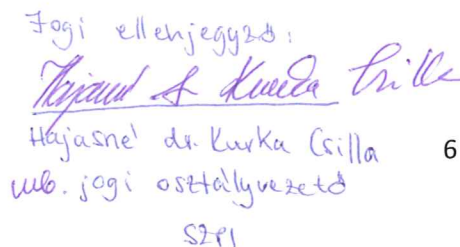 Jogi ellenjegyző:
Hajasné dr Kurka Csilla
Hajasné dr. Kurka Csilla
mb. jogi osztályvezető
SZPI
6